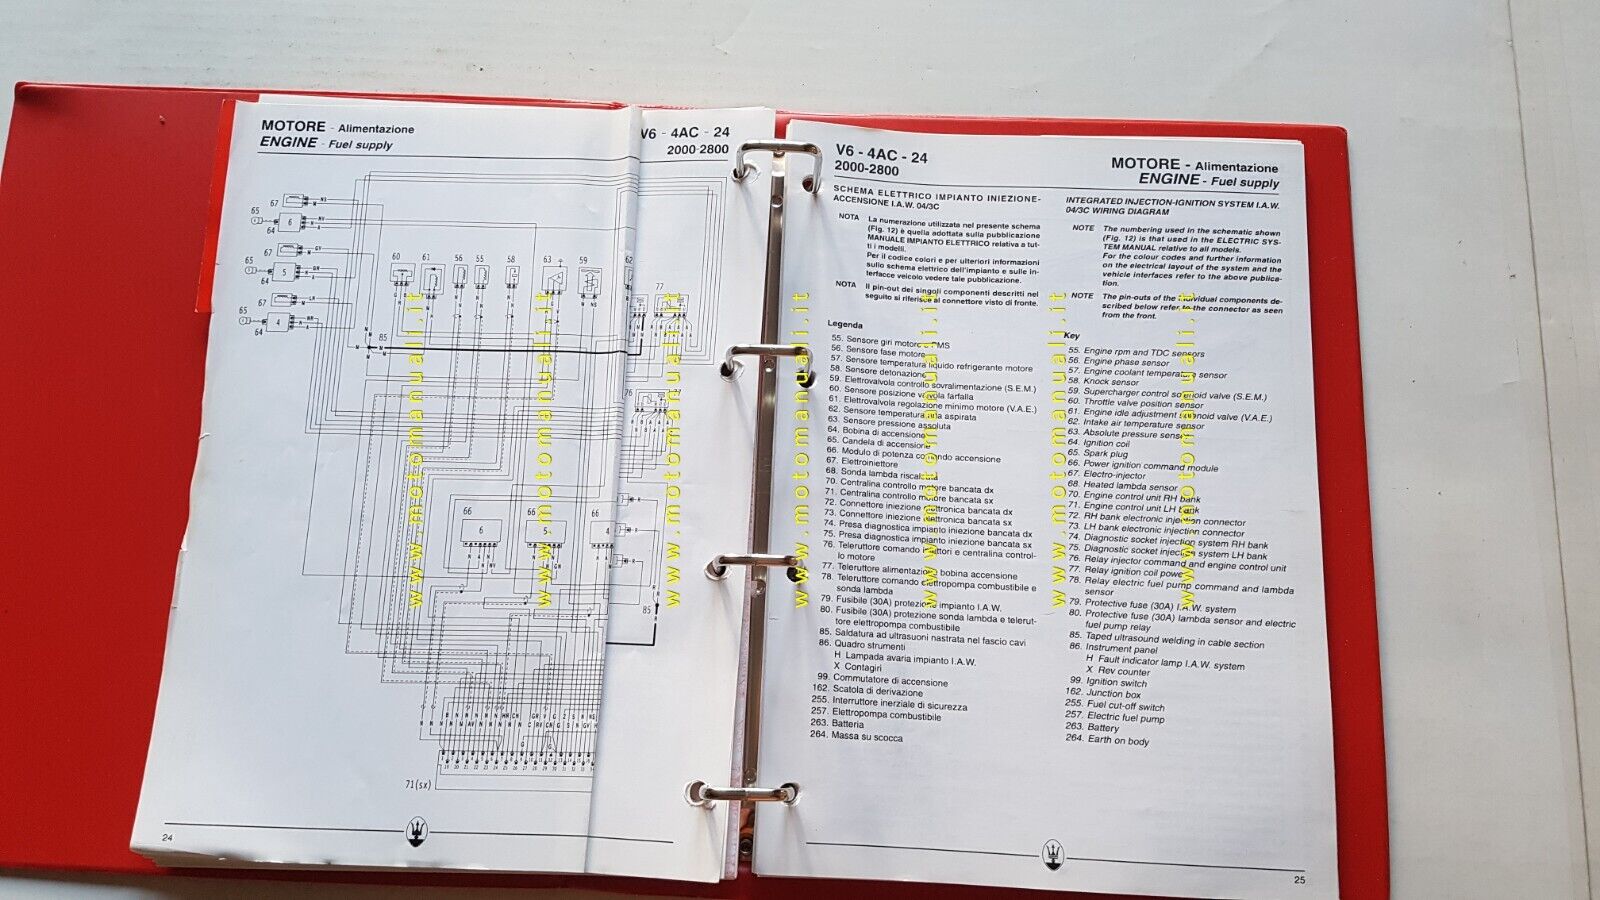 MOTORE - Alimentazione
ENGINE - Fuel supply
V6 - 4AC - 24
2000-2800
67
65
64
6
67
65
64
5
67
65
64
4
85
60
61
56
55
58
63
59
62
77
76
66
6
66
5
66
4
85
71(sx)
24
V6 - 4AC - 24
2000-2800
MOTORE - Alimentazione
ENGINE - Fuel supply
SCHEMA ELETTRICO IMPIANTO INIEZIONE-
ACCENSIONE I.A.W. 04/3C
NOTA La numerazione utilizzata nel presente schema
(Fig. 12) è quella adottata sulla pubblicazione
MANUALE IMPIANTO ELETTRICO relativa a tut-
ti i modelli.
Per il codice colori e per ulteriori informazioni
sullo schema elettrico dell'impianto e sulle in-
terfacce veicolo vedere tale pubblicazione.
NOTA Il pin-out dei singoli componenti descritti nel
seguito si riferisce al connettore visto di fronte.
Legenda
55. Sensore giri motore e PMS
56. Sensore fase motore
57. Sensore temperatura liquido refrigerante motore
58. Sensore detonazione
59. Elettrovalvola controllo sovralimentazione (S.E.M.)
60. Sensore posizione valvola farfalla
61. Elettrovalvola regolazione minimo motore (V.A.E.)
62. Sensore temperatura aria aspirata
63. Sensore pressione assoluta
64. Bobina di accensione
65. Candela di accensione
66. Modulo di potenza comando accensione
67. Elettroiniettore
68. Sonda lambda riscaldata
70. Centralina controllo motore bancata dx
71. Centralina controllo motore bancata sx
72. Connettore iniezione elettronica bancata dx
73. Connettore iniezione elettronica bancata sx
74. Presa diagnostica impianto iniezione bancata dx
75. Presa diagnostica impianto iniezione bancata sx
76. Teleruttore comando iniettori e centralina control-
lo motore
77. Teleruttore alimentazione bobina accensione
78. Teleruttore comando elettropompa combustibile e
sonda lambda
79. Fusibile (30A) protezione impianto I.A.W.
80. Fusibile (30A) protezione sonda lambda e telerut-
tore elettropompa combustibile
85. Saldatura ad ultrasuoni nastrata nel fascio cavi
86. Quadro strumenti
H Lampada avaria impianto I.A.W.
X Contagiri
99. Commutatore di accensione
162. Scatola di derivazione
255. Interruttore inerziale di sicurezza
257. Elettropompa combustibile
263. Batteria
264. Massa su scocca
INTEGRATED INJECTION-IGNITION SYSTEM I.A.W.
04/3C WIRING DIAGRAM
NOTE The numbering used in the schematic shown
(Fig. 12) is that used in the ELECTRIC SYS-
TEM MANUAL relative to all models.
For the colour codes and further information
on the electrical layout of the system and the
vehicle interfaces refer to the above publica-
tion.
NOTE The pin-outs of the individual components de-
scribed below refer to the connector as seen
from the front.
Key
55. Engine rpm and TDC sensors
56. Engine phase sensor
57. Engine coolant temperature sensor
58. Knock sensor
59. Supercharger control solenoid valve (S.E.M.)
60. Throttle valve position sensor
61. Engine idle adjustment solenoid valve (V.A.E.)
62. Intake air temperature sensor
63. Absolute pressure sensor
64. Ignition coil
65. Spark plug
66. Power ignition command module
67. Electro-injector
68. Heated lambda sensor
70. Engine control unit RH bank
71. Engine control unit LH bank
72. RH bank electronic injection connector
73. LH bank electronic injection connector
74. Diagnostic socket injection system RH bank
75. Diagnostic socket injection system LH bank
76. Relay injector command and engine control unit
77. Relay ignition coil power
78. Relay electric fuel pump command and lambda
sensor
79. Protective fuse (30A) I.A.W. system
80. Protective fuse (30A) lambda sensor and electric
fuel pump relay
85. Taped ultrasound welding in cable section
86. Instrument panel
H Fault indicator lamp I.A.W. system
X Rev counter
99. Ignition switch
162. Junction box
255. Fuel cut-off switch
257. Electric fuel pump
263. Battery
264. Earth on body
25
www.motomanuali.it
www.motomanuali.it
www.motomanuali.it
www.motomanuali.it
www.motomanuali.it
www.motomanuali.it
www.motomanuali.it